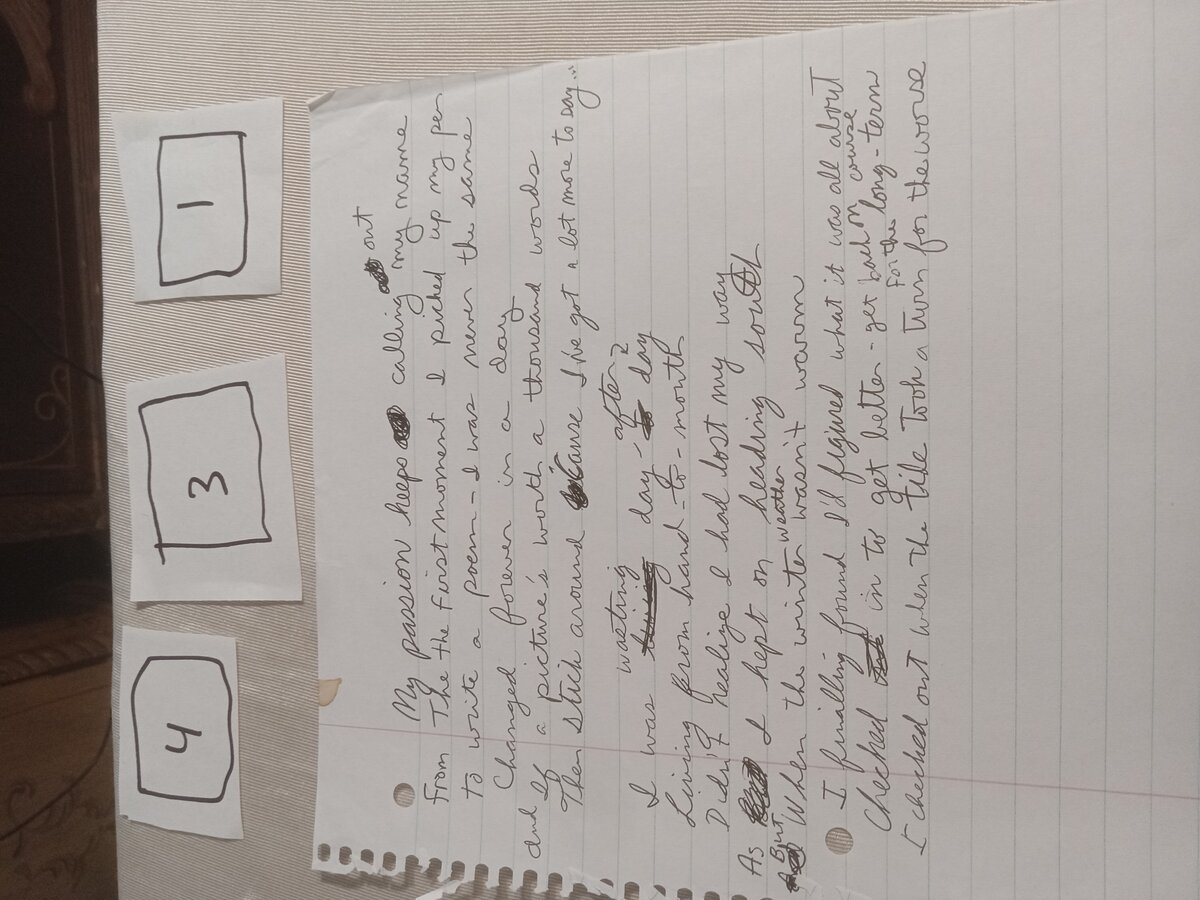 4
3
1
My passion keeps calling out my name
From the first moment I picked up my pen
to write a poem - I was never the same
Changed forever in a day
and If a picture's worth a thousand words
Then stick around 'Cause I've got a lot more to say...
I was wasting day - after day
Living from hand - to - mouth
Didn't realize I had lost my way
As I kept on heading south
But When the winter weather wasn't warm
I finally found I'd figured what it was all about
Checked in to get better - get back on course for the long - term
I checked out when the tide Took a turn for the worse